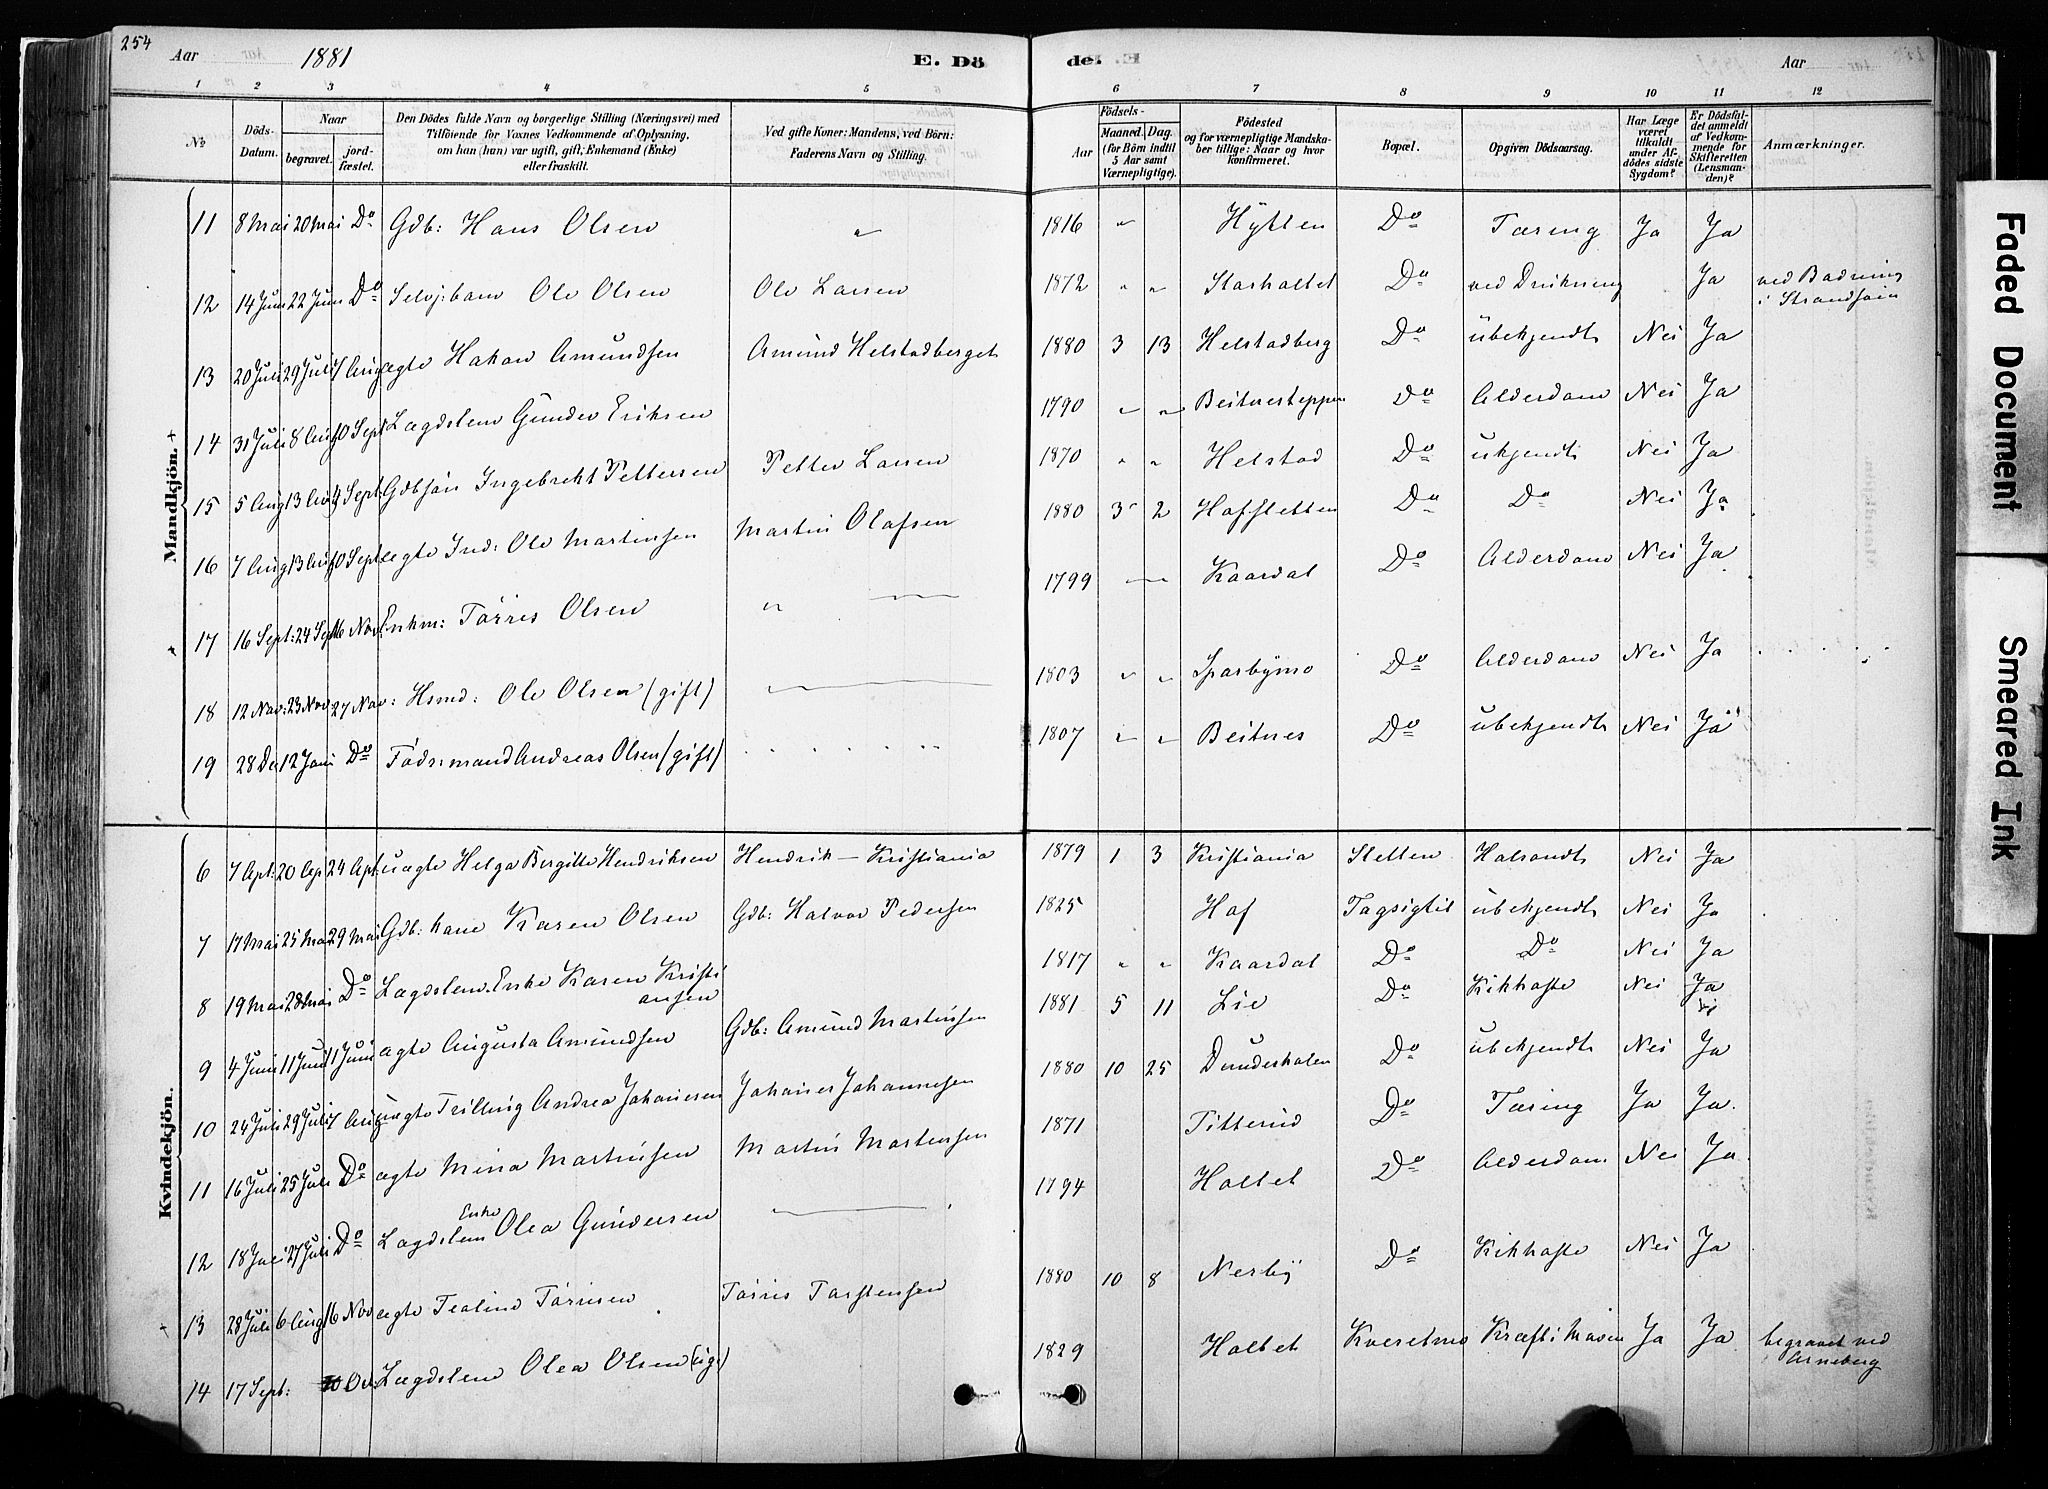 254
Aar 1881
E. Dö
de.
Aar
1 2 3 4 5 6 7 8 9 10 11 12
№
Döds-Datum.
Naar
begravet.
jord-fæstet.
Den Dödes fulde Navn og borgerlige Stilling (Næringsvei) med
Tilföiende for Voxnes Vedkommende af Oplysning,
om han (hun) var ugift, gift, Enkemand (Enke)
eller fraskilt.
Ved gifte Koner: Mandens, ved Börn:
Faderens Navn og Stilling.
Födsels-
Aar
Maaned. Dag.
(for Börn indtil
5 Aar samt
Værnepligtige).
Födested
og for værnepligtige Mandska-
ber tillige: Naar og hvor
konfirmeret.
Bopæl.
Opgiven Dödsaarsag.
Har Læge
været
tilkaldt
under Af-
dödes sidste
Sygdom?
Er Dödsfal-
det anmeldt
af Vedkom-
mende for
Skifteretten
(Lensman-
den)?
Anmærkninger.
Mandkjön.
11 8 Mai 20 Mai Do Gdb: Hans Olsen " 1816 " Hytten Do Tæring Ja Ja
12 14 Juni 22 Juni Do Selvj:barn Ole Olsen Ole Larsen 1872 " " Do ved Drukning Ja ved Badning
i
13 20 Juli 29 Juli 7 Aug ægte Hakon Amundsen Amund Helstadberget 1880 3 13 Helstadberg Do ubekjendt Nei Ja
14 31 Juli 8 Aug Sept Lægdslem Gunder Eriksen 1790 " " Do Alderdom Nei Ja
15 5 Aug 13 Aug 4 Sept: Gdbsøn Ingebrekt Pettersen Petter Larsen 1870 " " Helstad Do ukjendt Nei Ja
16 7 Aug 13 Aug Sept ægte Ind: Ole Martinsen Martin Olafsen 1880 3 2 Hofsletten Do Do Nei Ja
17 16 Sept: 24 Sept 16 Nov: Enkm: Törris Olsen " 1799 Kaardal Do Alderdom Nei Ja
18 12 Nov: 23 Nov 27 Nov: Hsmd: Ole Olsen (gift) 1803 " " Sparbymo Do Alderdom Nei Ja
19 28 De 12 Jan Do Födsrmand Andreas Olsen (gift) 1807 " " Beitnes Do ubekjendt Nei Ja
Kvindekjön.
6 7 Apl: 20 Ap 24 Apl: uægte Helga Bergitte Hendriksen Hendrik — Kristiania 1879 1 3 Kristiania Sletten Halsondt Nei Ja
7 17 Mai 25 Mai 29 Mai Gdb: kone Karen Olsen Gdb: Halvor Pedersen 1825 Hof Tagsigtil ubekjendt Nei Ja
8 19 Mai 28 Mai Do Lægdslem. Enke Karen Kristi
ansen 1817 " " Kaardal Do Do Nei Ja
9 4 Juni 11 Juni Juni ægte Augusta Amundsen Gdb: Amund Martinsen 1881 5 11 Lie Do Kikhoste Nei Ja
10 24 Juli 29 Juli 7 Aug uægte Trilling Andrea Johansen Johanes Johannesen 1880 10 25 Dunderholen Do ubekjendt Nei Ja
11 16 Juli 25 Juli Do ægte Mina Martinsen Martin Martensen 1871 Titterud Do Tæring Ja Ja
12 18 Juli 27 Juli Do Lægdslem Enke Olea Gundersen 1794 Holtet Do Alderdom Nei Ja
13 28 Juli 6 Aug 16 Nov ægte Teoline Törrisen Törris Torstensen 1880 10 8 Nerby Do Kikhoste Nei Ja
14 17 Sept: Lægdslem Olea Olsen (ug:) 1829 Holtet Kveretmo Kræft i Maven Ja Ja begravet ved
Arneberg
Faded Document
Smeared Ink